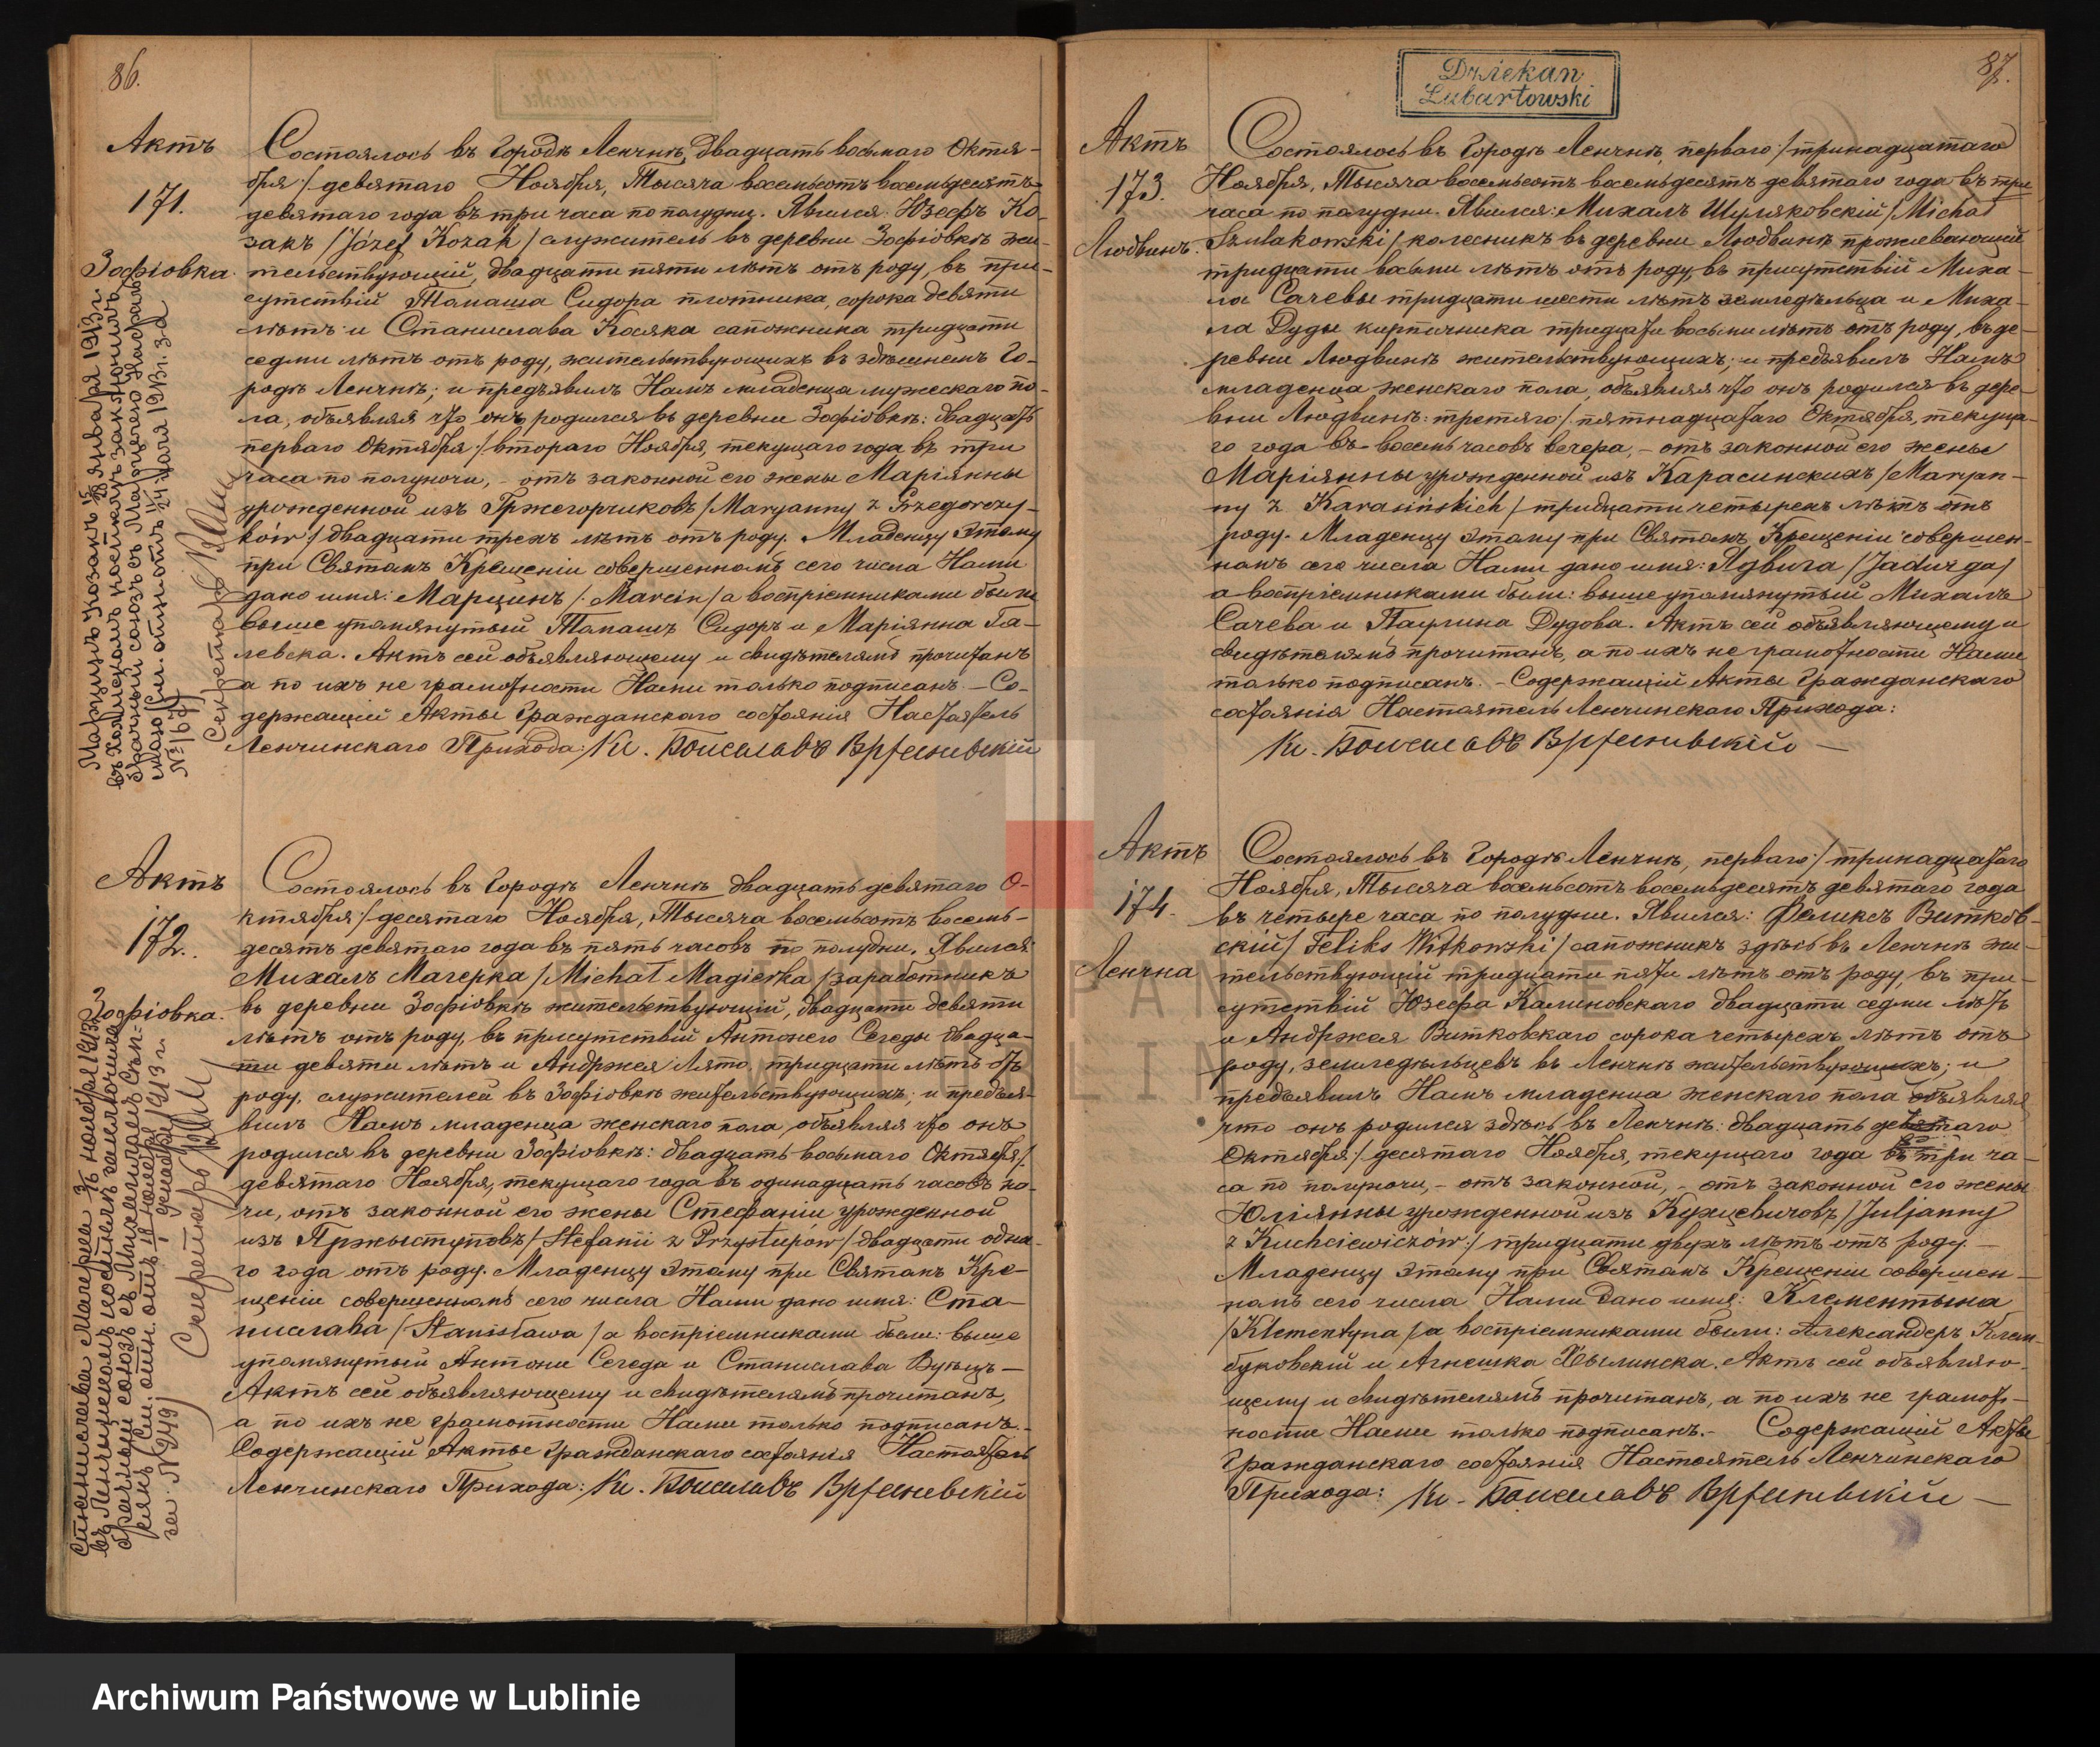 86.
Актъ
171.
Зофіовка.
Состоялось въ Городѣ Ленчнѣ, двадцать восьмаго Октя-
бря/ девятаго Ноября, Тысяча восемьсотъ восемьдесятъ
девятаго года въ три часа по полудни. Явился: Юзефъ Ко-
закъ /Józef Kozak/ служитель въ деревни Зофіовкѣ жи-
тельствующій, двадцати пяти лѣтъ отъ роду, въ при-
сутствій Томаша Сидора плотника, сорока девяти
лѣтъ и Станислава Косяка сапожника тридцати
седми лѣтъ отъ роду, жительствующихъ въ здѣшнемъ Го-
родѣ Ленчнѣ; и предъявилъ Намъ младенца мужескаго по-
ла, объявляя что онъ родился въ деревни Зофіовкѣ: двадцать
перваго Октября/ втораго Ноября, текущаго года въ три
часа по полуночи, - отъ законной его жены Маріянны
урожденной изъ Гржегорчиковъ /Maryanny z Grzegorczy-
ków/ двадцати трехъ лѣтъ отъ роду. Младенцу этому
при Святомъ Крещеніи совершенномъ сего числа Нами
дано имя: Марцинъ /: Marcin/ а воспріемниками были
выше упомянутый Томашъ Сидоръ и Маріянна Га-
левска. Актъ сей объявляющему и свидѣтелямъ прочитанъ
а по ихъ не грамотности Нами только подписанъ. - Со-
держащій Акты Гражданскаго состоянія Настоятель
Ленчинскаго Прихода: Кс. Болеславъ
Марцинъ Козакъ 15/28 января 1913 г.
въ Холмскомъ костелѣ заключилъ
брачный союзъ съ
№ 167
Секретарь
Актъ
172.
Зофіовка.
Состоялось въ Городѣ Ленчнѣ двадцать девятаго О-
ктября/ десятаго Ноября, Тысяча восемьсотъ восемь-
десятъ девятаго года въ пять часовъ по полудни. Явился
Михалъ Магерка /Michał Magierka/ заработникъ
въ деревни Зофіовкѣ жительствующій, двадцати девяти
лѣтъ отъ роду, въ присутствій Антонего Сегеды двадца-
ти девяти лѣтъ и Андржея Лято, тридцати лѣтъ отъ
роду, служителей въ Зофіовкѣ жительствующихъ; и предъя-
вилъ Намъ младенца женскаго пола, объявляя что онъ
родился въ деревни Зофіовкѣ: двадцать восьмаго Октября/
девятаго Ноября, текущаго года въ одинадцать часовъ но-
чи, отъ законной его жены Стефаніи урожденной
изъ Пржыступовъ /Stefanii z Przystupów/ двадцати одна-
го года отъ роду. Младенцу этому при Святомъ Кре-
щеніи совершенномъ сего числа Нами дано имя: Ста-
нислава /Stanisława/ а воспріемниками были: выше
упомянутый Антони Сегеда и Станислава
Актъ сей объявляющему и свидѣтелямъ прочитанъ,
а по ихъ не грамотности Нами только подписанъ. -
Содержащій Акты Гражданскаго состоянія Настоятель
Ленчинскаго Прихода: Кс. Болеславъ
Станислава Магерка ноября 1913 г.
брачный союзъ съ
Секретарь
87.
Dziekan
Lubartowski
Актъ
173.
Людвинъ.
Состоялось въ Городѣ Ленчнѣ, перваго/ тринадцатаго
Ноября, Тысяча восемьсотъ восемьдесятъ девятаго года въ три
часа по полудни. Явился: Михалъ Шуляковскій /Michał
Szulakowski/ колесникъ въ деревни Людвинѣ проживающій
тридцати восьми лѣтъ отъ роду, въ присутствій Миха-
ла Сачевы тридцати шести лѣтъ земледѣльца и Миха-
ла Дуды кирпичника тридцати восьми лѣтъ отъ роду, въ де-
ревни Людвинѣ жительствующихъ; и предъявилъ Намъ
младенца женскаго пола, объявляя что онъ родился въ дере-
вни Людвинѣ: третяго/ пятнадцатаго Октября, текуща-
го года въ восемь часовъ вечера, - отъ законной его жены
Маріянны урожденной изъ Карасинскихъ /Maryan-
ny z Karasińskich/ тридцати четырехъ лѣтъ отъ
роду. Младенцу этому при Святомъ Крещеніи совершен-
номъ сего числа Нами дано имя: Ядвига /Jadwiga/
а воспріемниками были: выше упомянутый Михалъ
Сачева и Паулина Дудова. Актъ сей объявляющему и
свидѣтелямъ прочитанъ, а по ихъ не грамотности Нами
только подписанъ. - Содержащій Акты Гражданскаго
состоянія Настоятель Ленчинскаго Прихода:
Кс. Болеславъ
Актъ
174.
Ленчна
Состоялось въ Городѣ Ленчнѣ, перваго/ тринадцатаго
Ноября, Тысяча восемьсотъ восемьдесятъ девятаго года
въ четыре часа по полудни. Явился: Феликсъ Витков-
скій/ Feliks Witkowski/ сапожникъ здѣсь въ Ленчнѣ жи-
тельствующій тридцати пяти лѣтъ отъ роду, въ при-
сутствій Юзефа Калиновскаго двадцати седми лѣтъ
и Андржея Витковскаго сорока четырехъ лѣтъ отъ
роду, земледѣльцевъ въ Ленчнѣ жительствующихъ; и
предъявилъ Намъ младенца женскаго пола объявляя
что онъ родился здѣсь въ Ленчнѣ: двадцать девятаго
Октября/ десятаго Ноября, текущаго года въ три ча-
са по полуночи, - отъ законной, - отъ законной его жены
Юліянны урожденной изъ Кухцевичовъ /Juljanny
z Kuchciewiczów/ тридцати двухъ лѣтъ отъ роду. -
Младенцу этому при Святомъ Крещеніи совершен-
номъ сего числа Нами дано имя: Клементына
/Klementyna/ а воспріемниками были: Александеръ Клем-
буковскій и Агнешка Хвылинска. Актъ сей объявляю-
щему и свидѣтелямъ прочитанъ, а по ихъ не грамот-
ности Нами только подписанъ. - Содержащій Акты
Гражданскаго состоянія Настоятель Ленчинскаго
Прихода: Кс. Болеславъ
Archiwum Państwowe w Lublinie